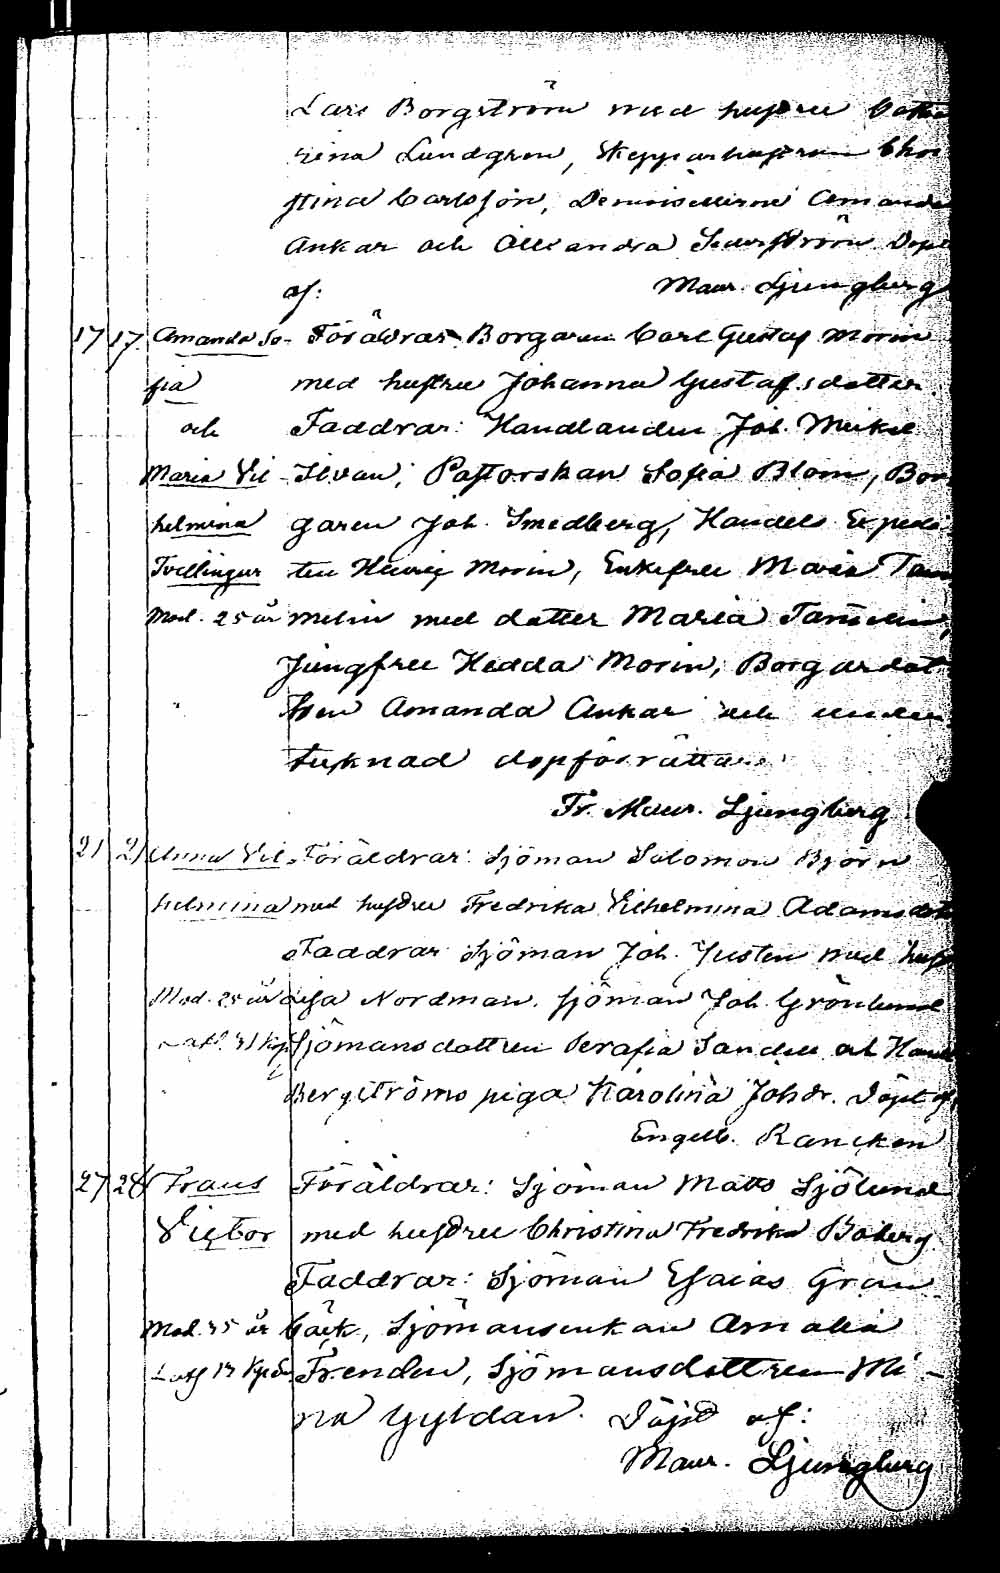 Lars Borgström med hustru Catha
rina Lundgren, Skepparhustrun Chri
stina Carlsson, Demoisellerne Amanda
Ankar och Alexandra Söderström. Döpt
af: Maur. Ljungberg
17 17. Amanda So- Föräldrar: Borgaren Carl Gustaf Morin
fia med hustru Johanna Gustafsdotter.
och Faddrar: Handlanden Joh. Mickel
Maria Vil- Ilvan, Pastorskan Sofia Blom, Bor
helmina garen Joh. Smedberg, Handels Expedi
Tvillingar ten Henrig Morin, Enkefru Maria Tam
Mod. 25 år melin med dotter Maria Tam̄elin,
Jungfru Hedda Morin, Borgardot
tren Amanda Ankar och under
tecknad dopförrättare
Fr. Maur. Ljungberg
21 21 Anna Vil- Föräldrar: Sjöman Salomon Björn
helmina med hustru Fredrika Vilhelmina Adamsdot
Faddrar: Sjöman Joh. Justen med hust
Mod. 25 år Lisa Nordman, sjöman Joh. Grönlund
Sjömansdottren Serafia Sandell och Hand
Bergströms piga Karolina Johsdr. Döpt af
Engelb. Rancken
27 28 Frans Föräldrar: Sjöman Matts Sjölund
Victor med hustru Christina Fredrika Boberg.
Faddrar: Sjöman Esaias Gran
Mod. 35 år bäck, Sjömansenkan Amalia
Frenden, Sjömansdottren Mi-
na Gyldan. Döpt af:
Maur. Ljungberg